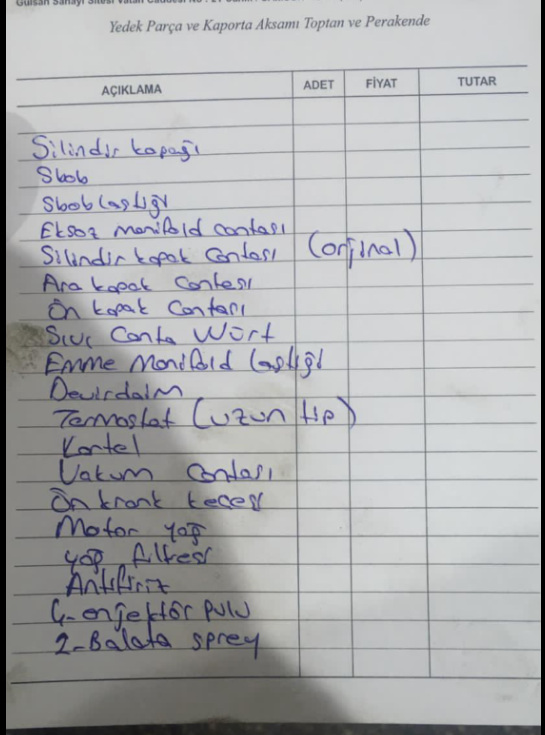 Gülsan Sanayi Sitesi Vatan Caddesi No : 21
Yedek Parça ve Kaporta Aksamı Toptan ve Perakende
AÇIKLAMA ADET FİYAT TUTAR
Silindir kapağı
Sbob
Sbob lastiği
Eksoz manifold contası
Silindir kapak Contası (orjinal)
Ara kapak Contası
Ön kapak Contası
Sıvı Conta Würt
Emme Manifold lastiği
Devirdaim
Termostat (uzun tip)
Kartel
Vakum Contası
Ön krank kecesi
Motor yağ
yağ filtresi
Antifiriz
4-enjektör pulu
2-Balata sprey